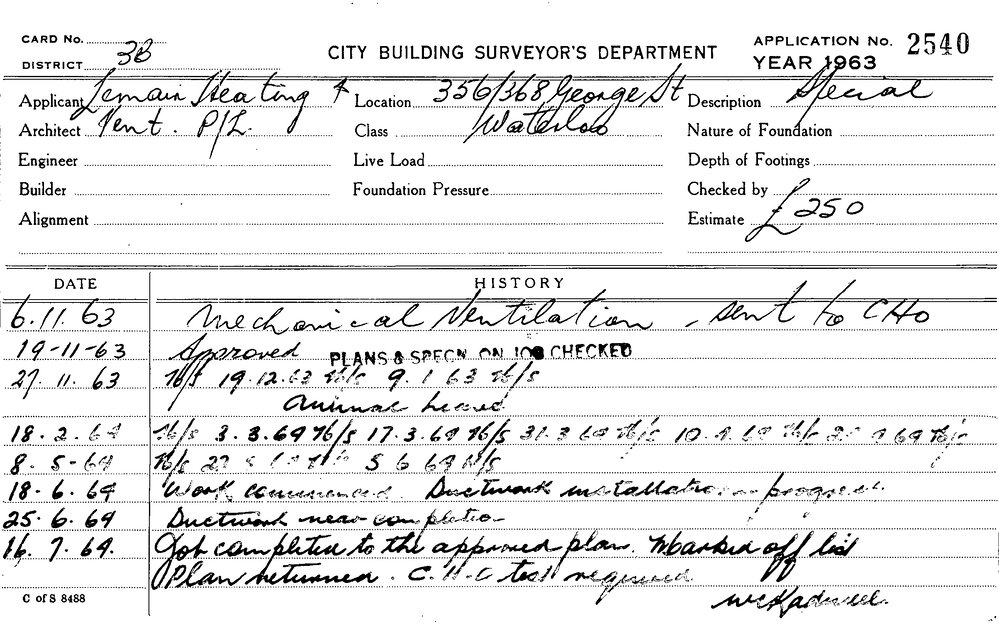 CARD No.
DISTRICT 3B
CITY BUILDING SURVEYOR'S DEPARTMENT
APPLICATION No. 2540
YEAR 1963
Applicant Lemair Heating &
Architect Vent. P/L.
Engineer
Builder
Alignment
Location 356/368 George St
Class Waterloo
Live Load
Foundation Pressure
Description Special
Nature of Foundation
Depth of Footings
Checked by
Estimate £250
DATE HISTORY
6.11.63 Mechanical Ventilation - sent to CHO
19-11-63 Approved PLANS & SPECN. ON JOB CHECKED
27.11.63 N/S 19.12.63 N/S 9.1.63 N/S
Annual leave
18.2.64 N/S 3.3.64 N/S 17.3.64 N/S 31.3.64 N/S 10.4.64 N/S 64 N/S
8.5-64 N/S N/S 5 6 64 N/S
18.6.64 Work commenced. Ductwork installation progress.
25.6.64 Ductwork near completion
16.7.64. Job completed to the approved plan. Marked off list
Plan returned. C.H.O test required
C of S 8488